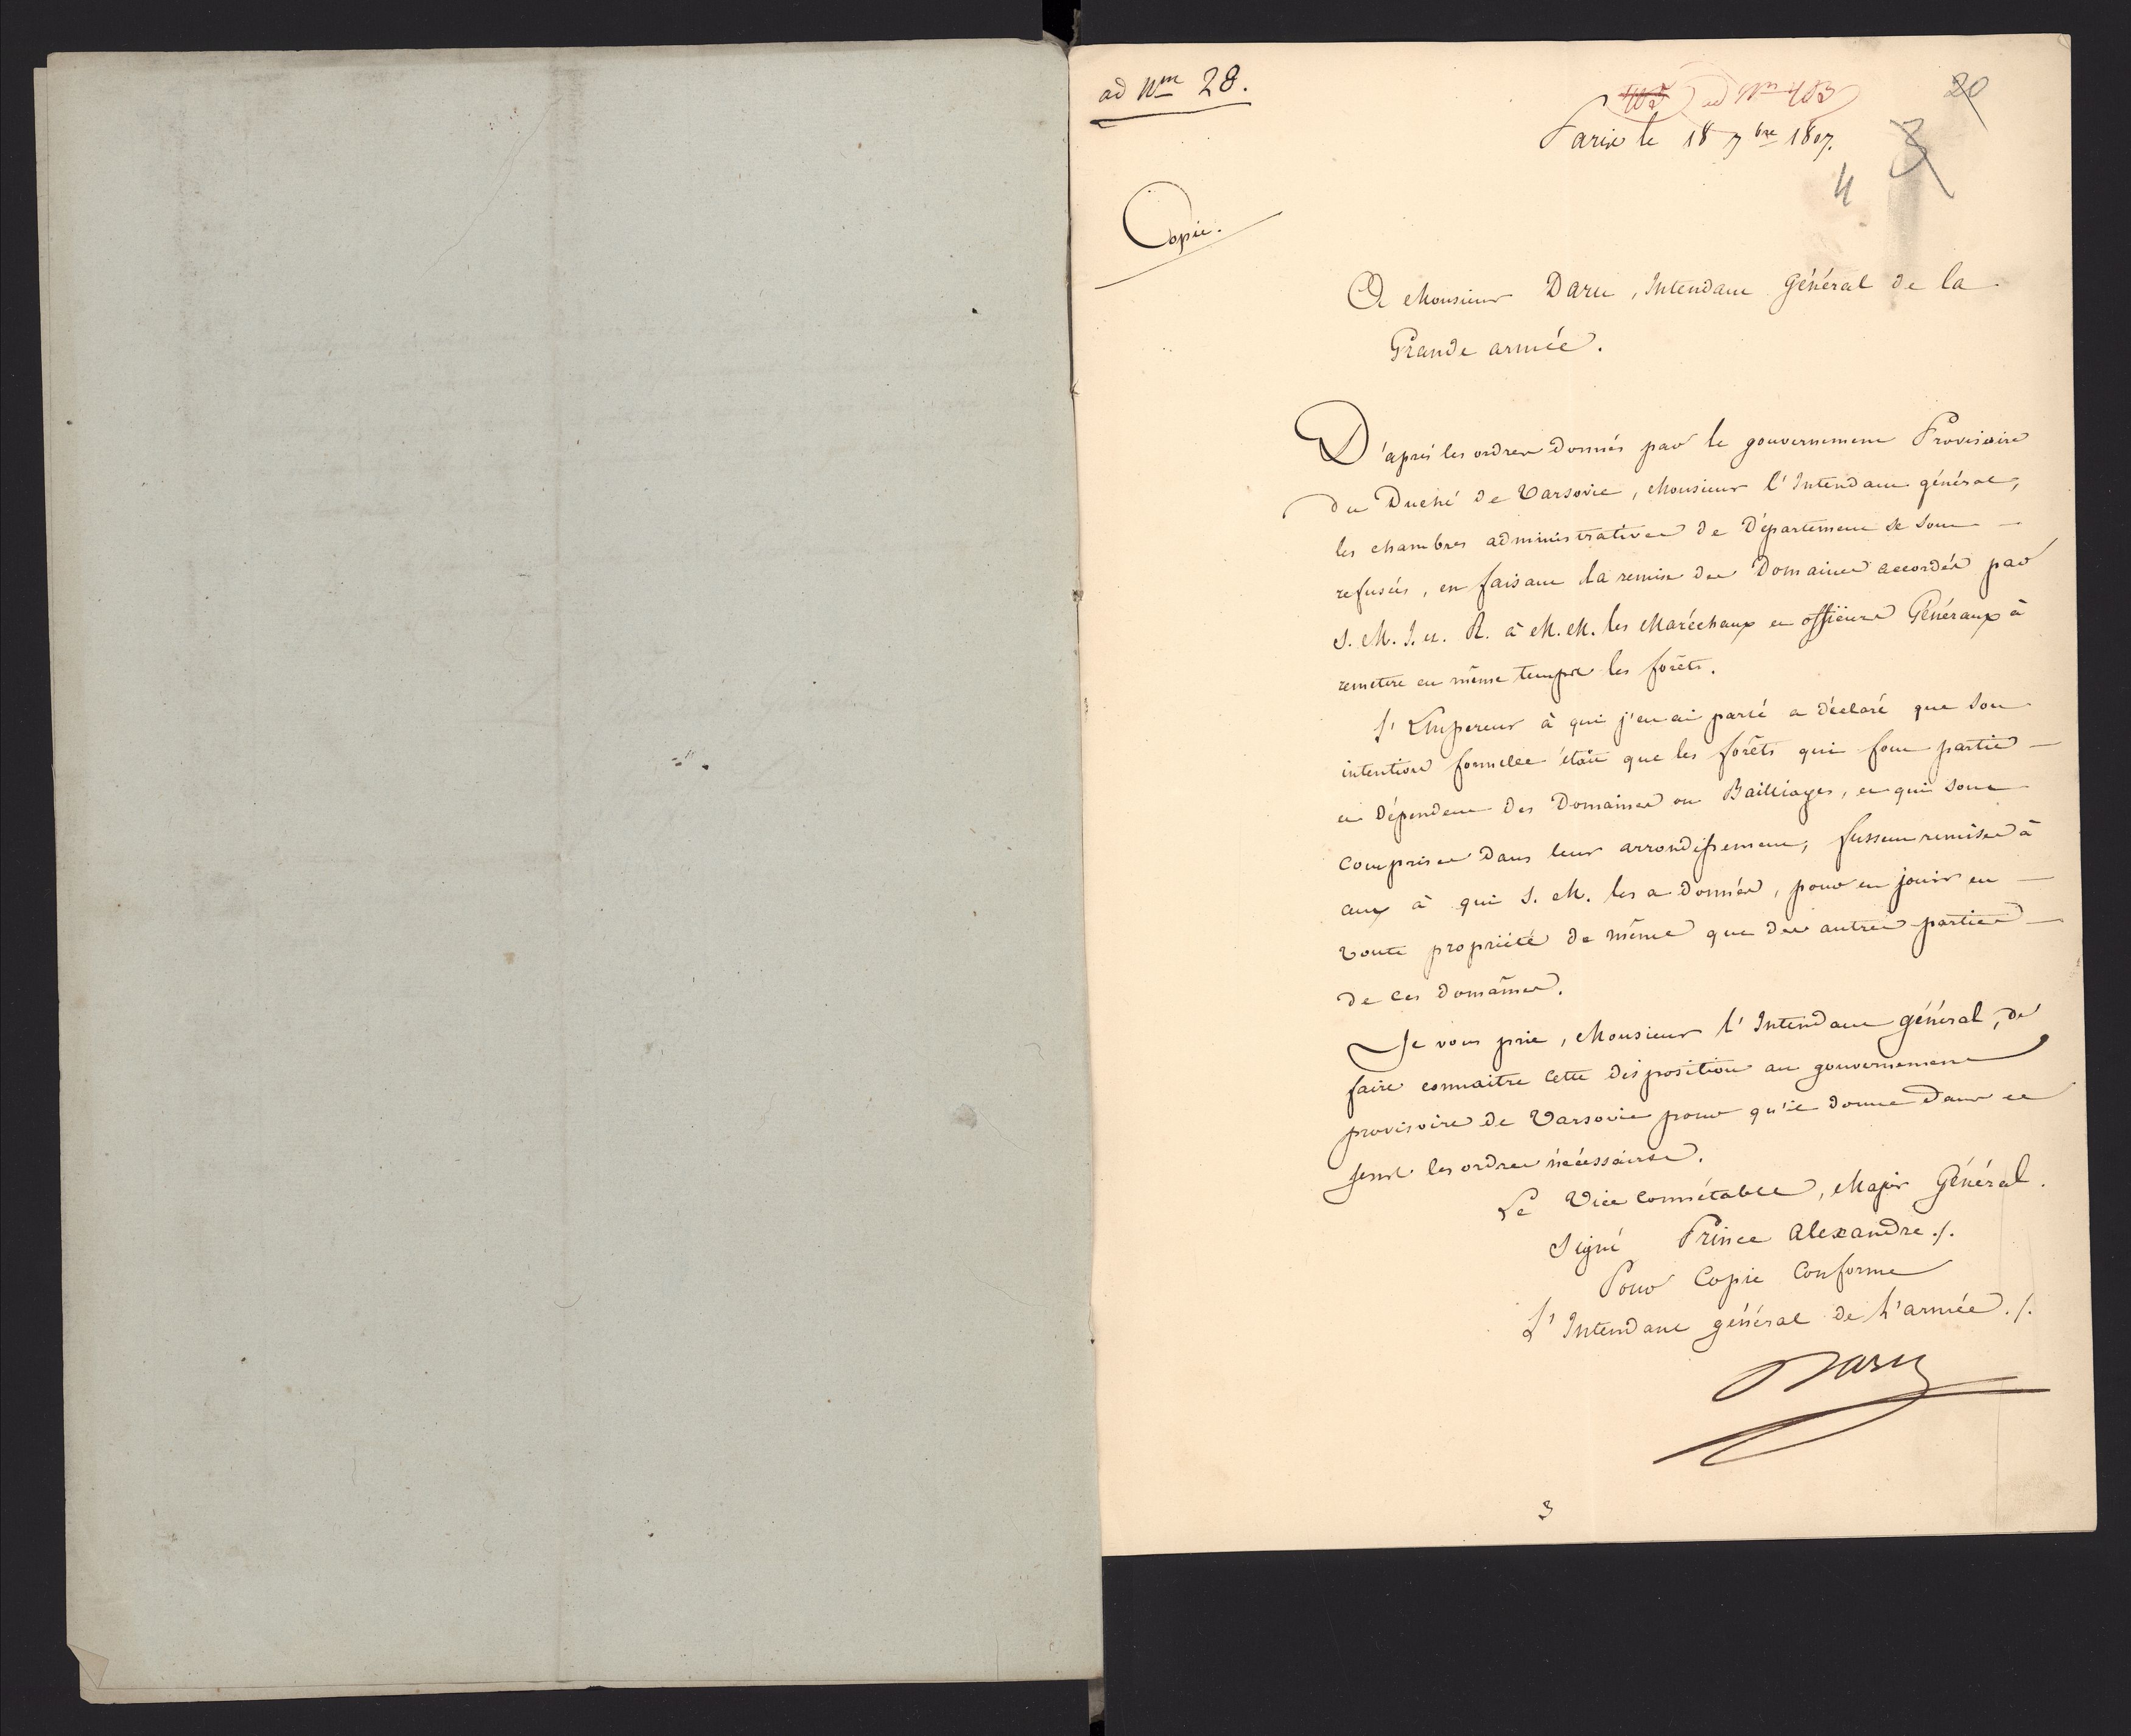 ad Nm 28.
ad Nm 403
20
Paris le 18 7bre 1807.
3
4
Copie.
A Monsieur Daru, Intendant Général de la
Grande armée.
D'après les ordres donnés par le gouvernement Provisoire
du Duché de Varsovie, Monsieur l'Intendant général,
les chambres administratives de Département se sont
refusés, en faisant la remise des Domaines accordés par
S. M. I. et. R. à M. M. les Maréchaux et officiers Généraux à
remettre en même temps les forêts.
L'Empereur à qui j'en ai parlé a déclaré que son
intention formelle était que les forêts qui font partie
et dépendent des Domaines ou Bailliages, et qui sont
comprises dans leur arrondissement, fussent remises à
ceux à qui S. M. les a données, pour en jouir en
toute propriété de même que des autres parties
de ces domaines.
Je vous prie, Monsieur l'Intendant général, de
faire connaitre cette disposition au gouvernement
provisoire de Varsovie pour qu'il donne dans ce
sens les ordres nécéssaires.
Le Vice Connétable, Major Général.
Signé Prince Alexandre ./.
Pour Copie Conforme
L'Intendant général de L'armée ./.
Daru
3